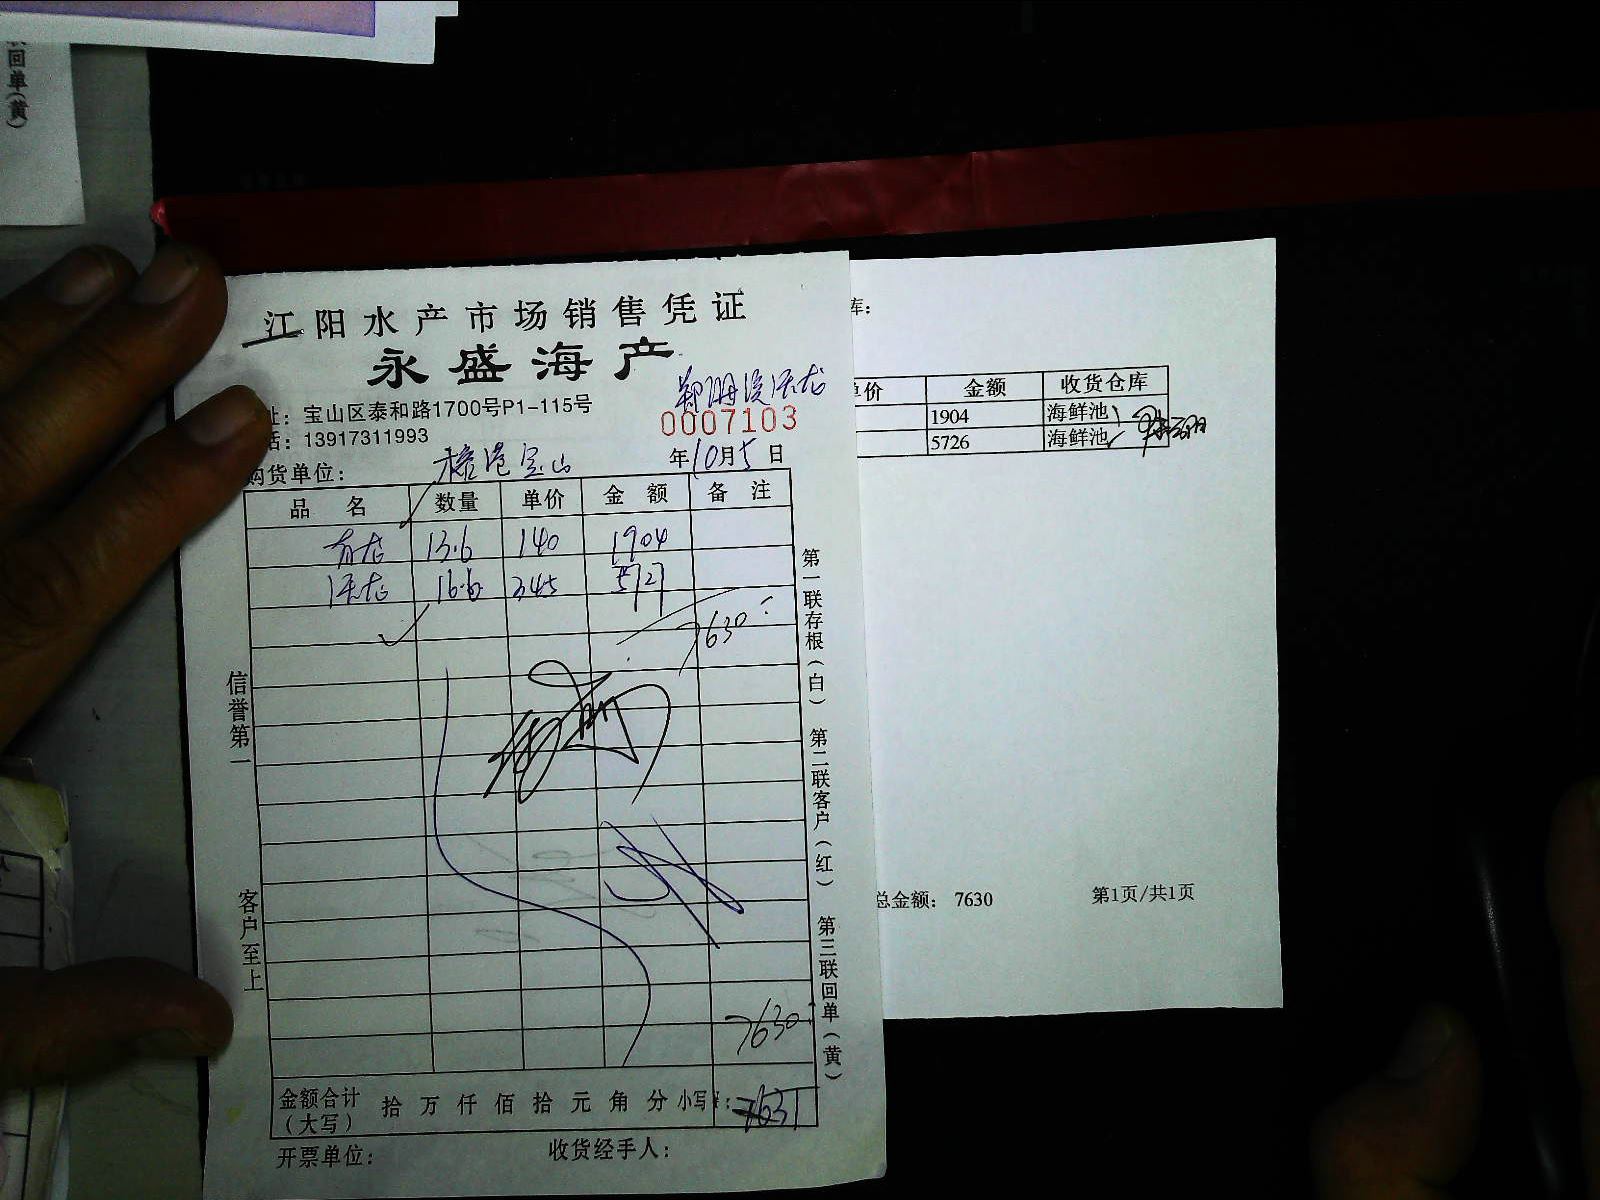 回单(黄)
江阳水产市场销售凭证
永盛海产
址：宝山区泰和路1700号P1-115号
0007103
话：13917311993
购货单位：
宝山
年10月5日
品名 数量 单价 金额 备注
13.6 140 1904
16.6 345 5727
7630
信誉第一
客户至上
第一联存根(白) 第二联客户(红) 第三联回单(黄)
7630
金额合计(大写) 拾万仟佰拾元角分 小写¥: 7631
开票单位： 收货经手人：
库：
单价 金额 收货仓库
1904 海鲜池
5726 海鲜池
总金额： 7630 第1页/共1页